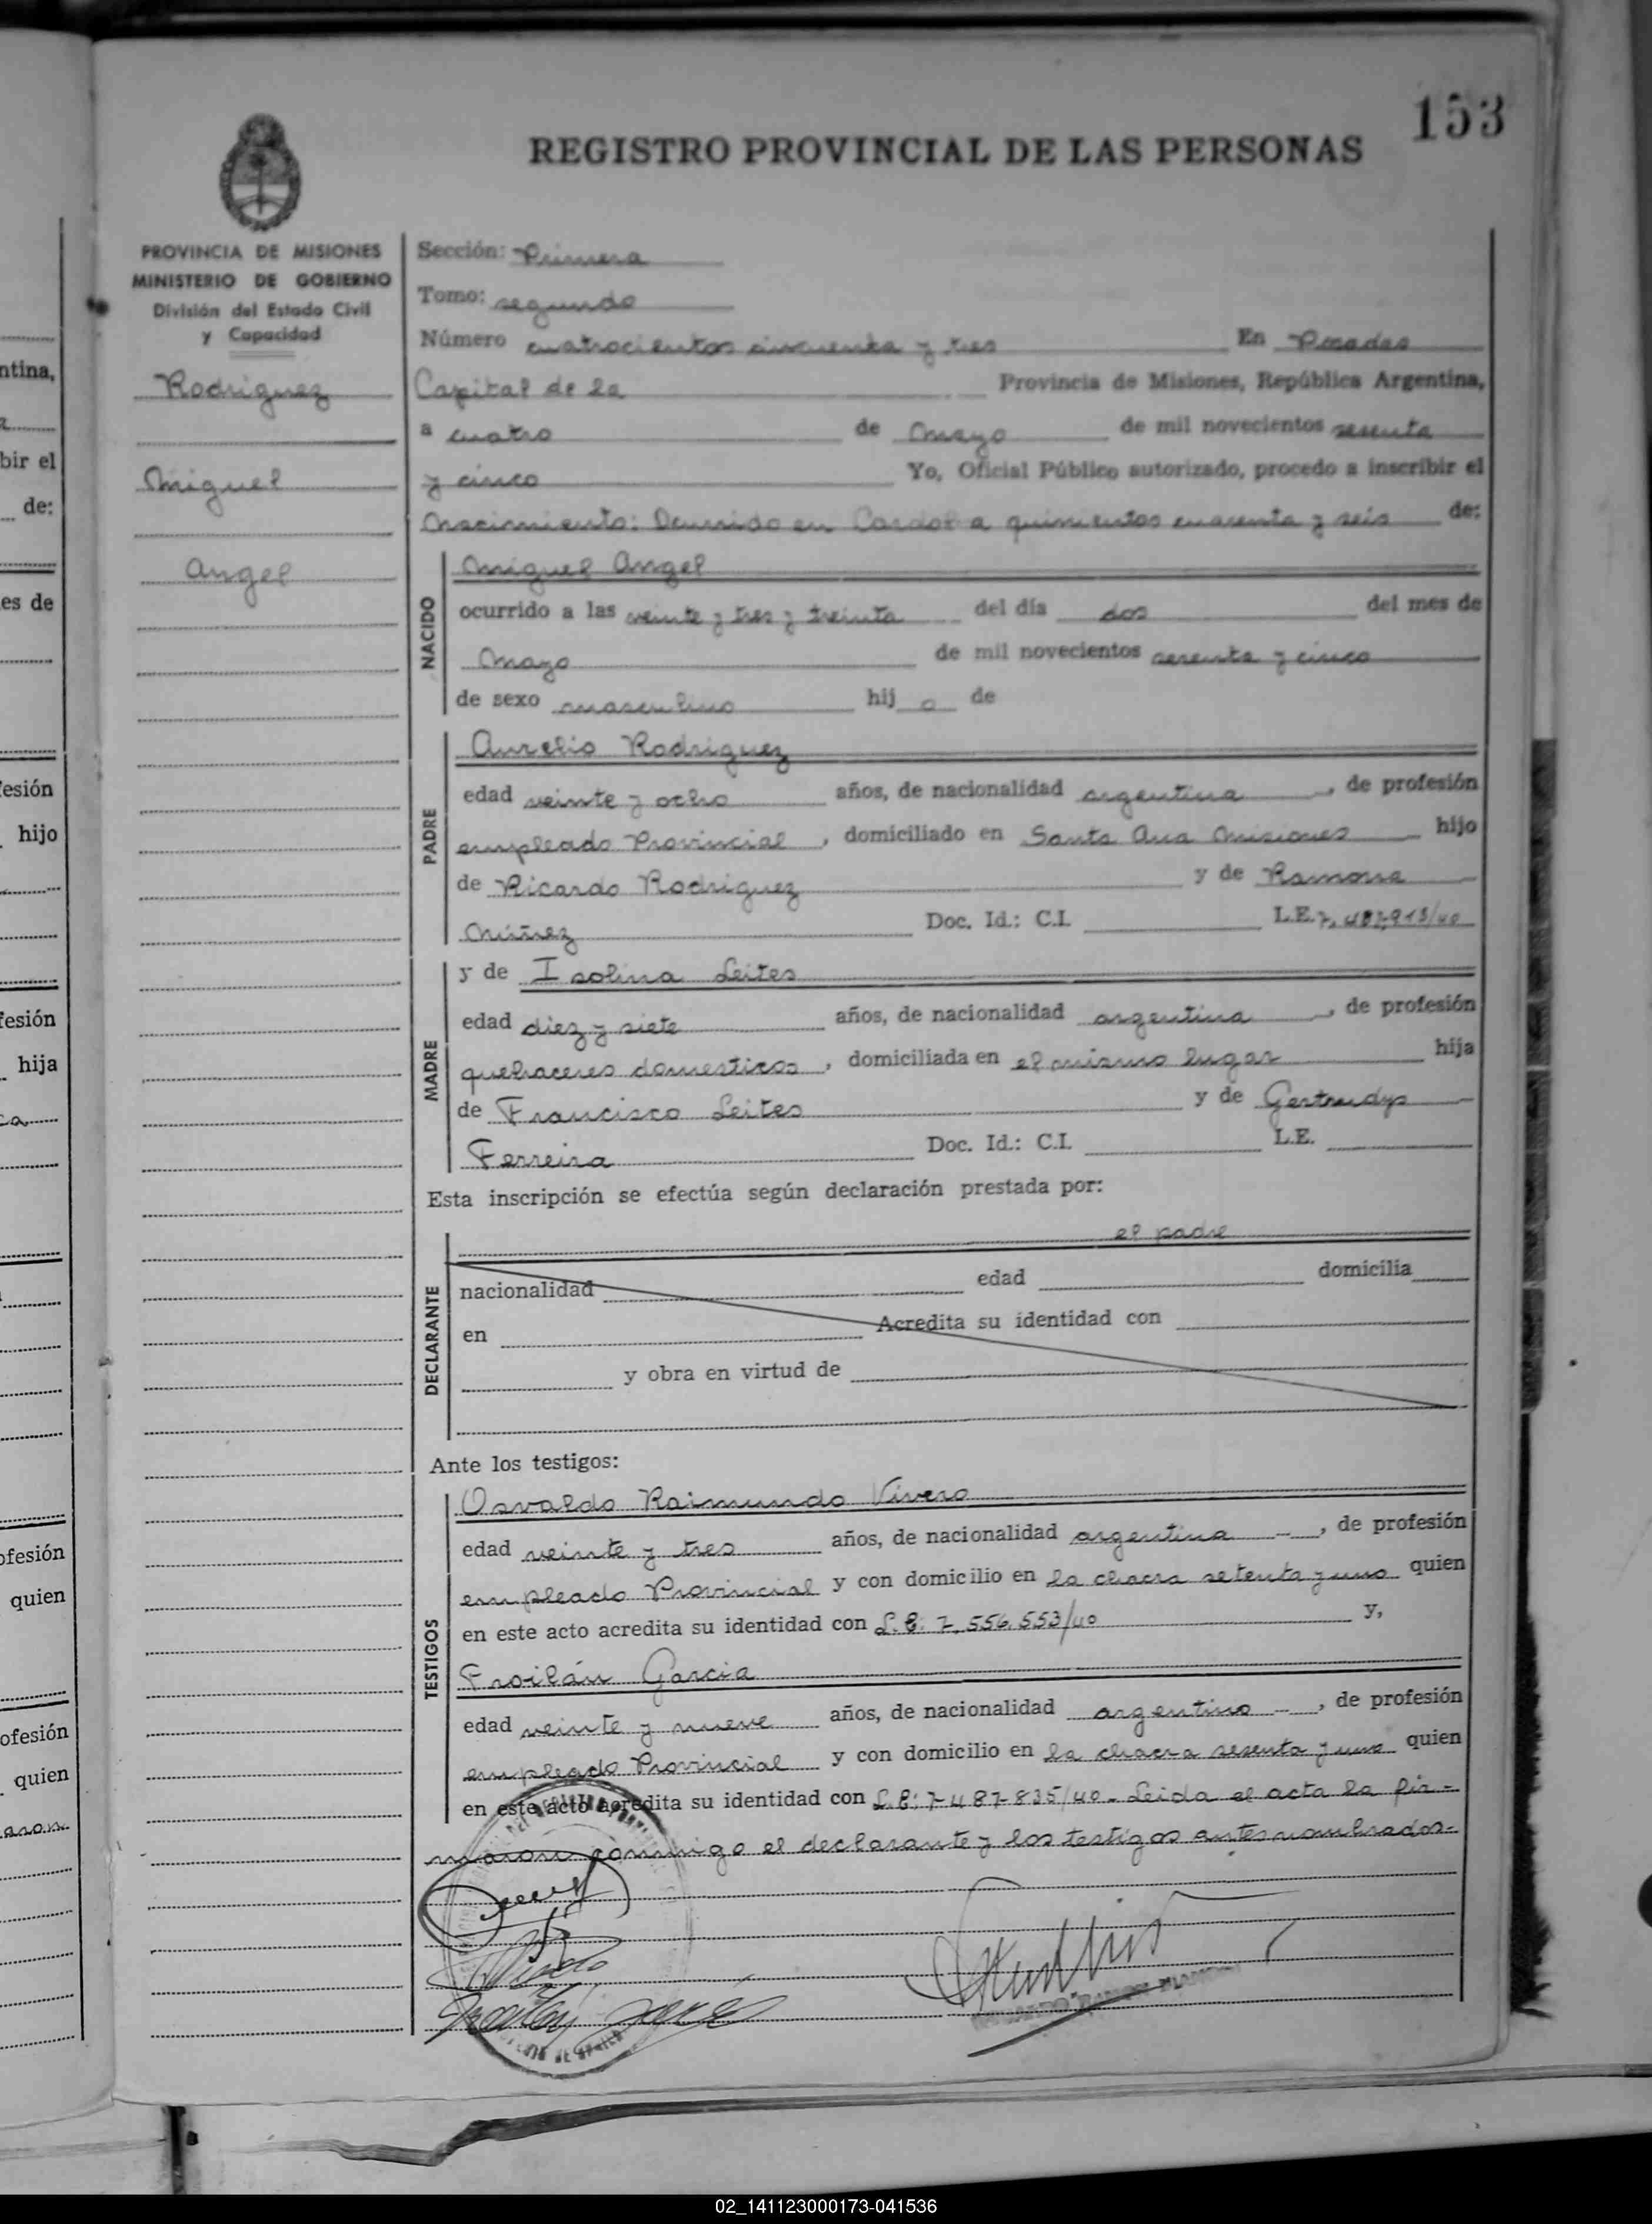 153
REGISTRO PROVINCIAL DE LAS PERSONAS
PROVINCIA DE MISIONES
MINISTERIO DE GOBIERNO
División del Estado Civil
y Capacidad
Rodriguez
Miguel
Angel
Sección: Primera
Tomo: segundo
Número cuatrocientos cincuenta y tres En Posadas
Capital de la Provincia de Misiones, República Argentina,
a cuatro de Mayo de mil novecientos sesenta
y cinco Yo, Oficial Público autorizado, procedo a inscribir el
Nacimiento: Ocurrido en a quinientos cuarenta y seis de:
NACIDO
Miguel Angel
ocurrido a las veinte y tres y treinta del día dos del mes de
Mayo de mil novecientos sesenta y cinco
de sexo masculino hij o de
PADRE
Aurelio Rodriguez
edad veinte y ocho años, de nacionalidad argentina, de profesión
empleado Provincial, domiciliado en Santa Ana Misiones hijo
de Ricardo Rodriguez y de Ramona
Núñez Doc. Id.: C.I. L.E. 7.487.913/40
MADRE
y de Isolina Leites
edad diez y siete años, de nacionalidad argentina, de profesión
quehaceres domesticos, domiciliada en el mismo lugar hija
de Francisco Leites y de Gertrudys
Ferreira Doc. Id.: C.I. L.E.
Esta inscripción se efectúa según declaración prestada por:
el padre
DECLARANTE
nacionalidad edad domicilia
en Acredita su identidad con
y obra en virtud de
Ante los testigos:
TESTIGOS
Osvaldo Raimundo Vivero
edad veinte y tres años, de nacionalidad argentina, de profesión
empleado Provincial y con domicilio en la chacra setenta y uno quien
en este acto acredita su identidad con L.E: 7.556.553/40 y,
Froilán Garcia
edad veinte y nueve años, de nacionalidad argentino, de profesión
empleado Provincial y con domicilio en la chacra sesenta y uno quien
en este acto acredita su identidad con L.E: 7-487-835/40. Leida el acta la fir-
maron conmigo el declarante y los testigos antes nombrados.
ntina,
bir el
de:
es de
fesión
hijo
fesión
hija
ofesión
quien
ofesión
quien
02_141123000173-041536